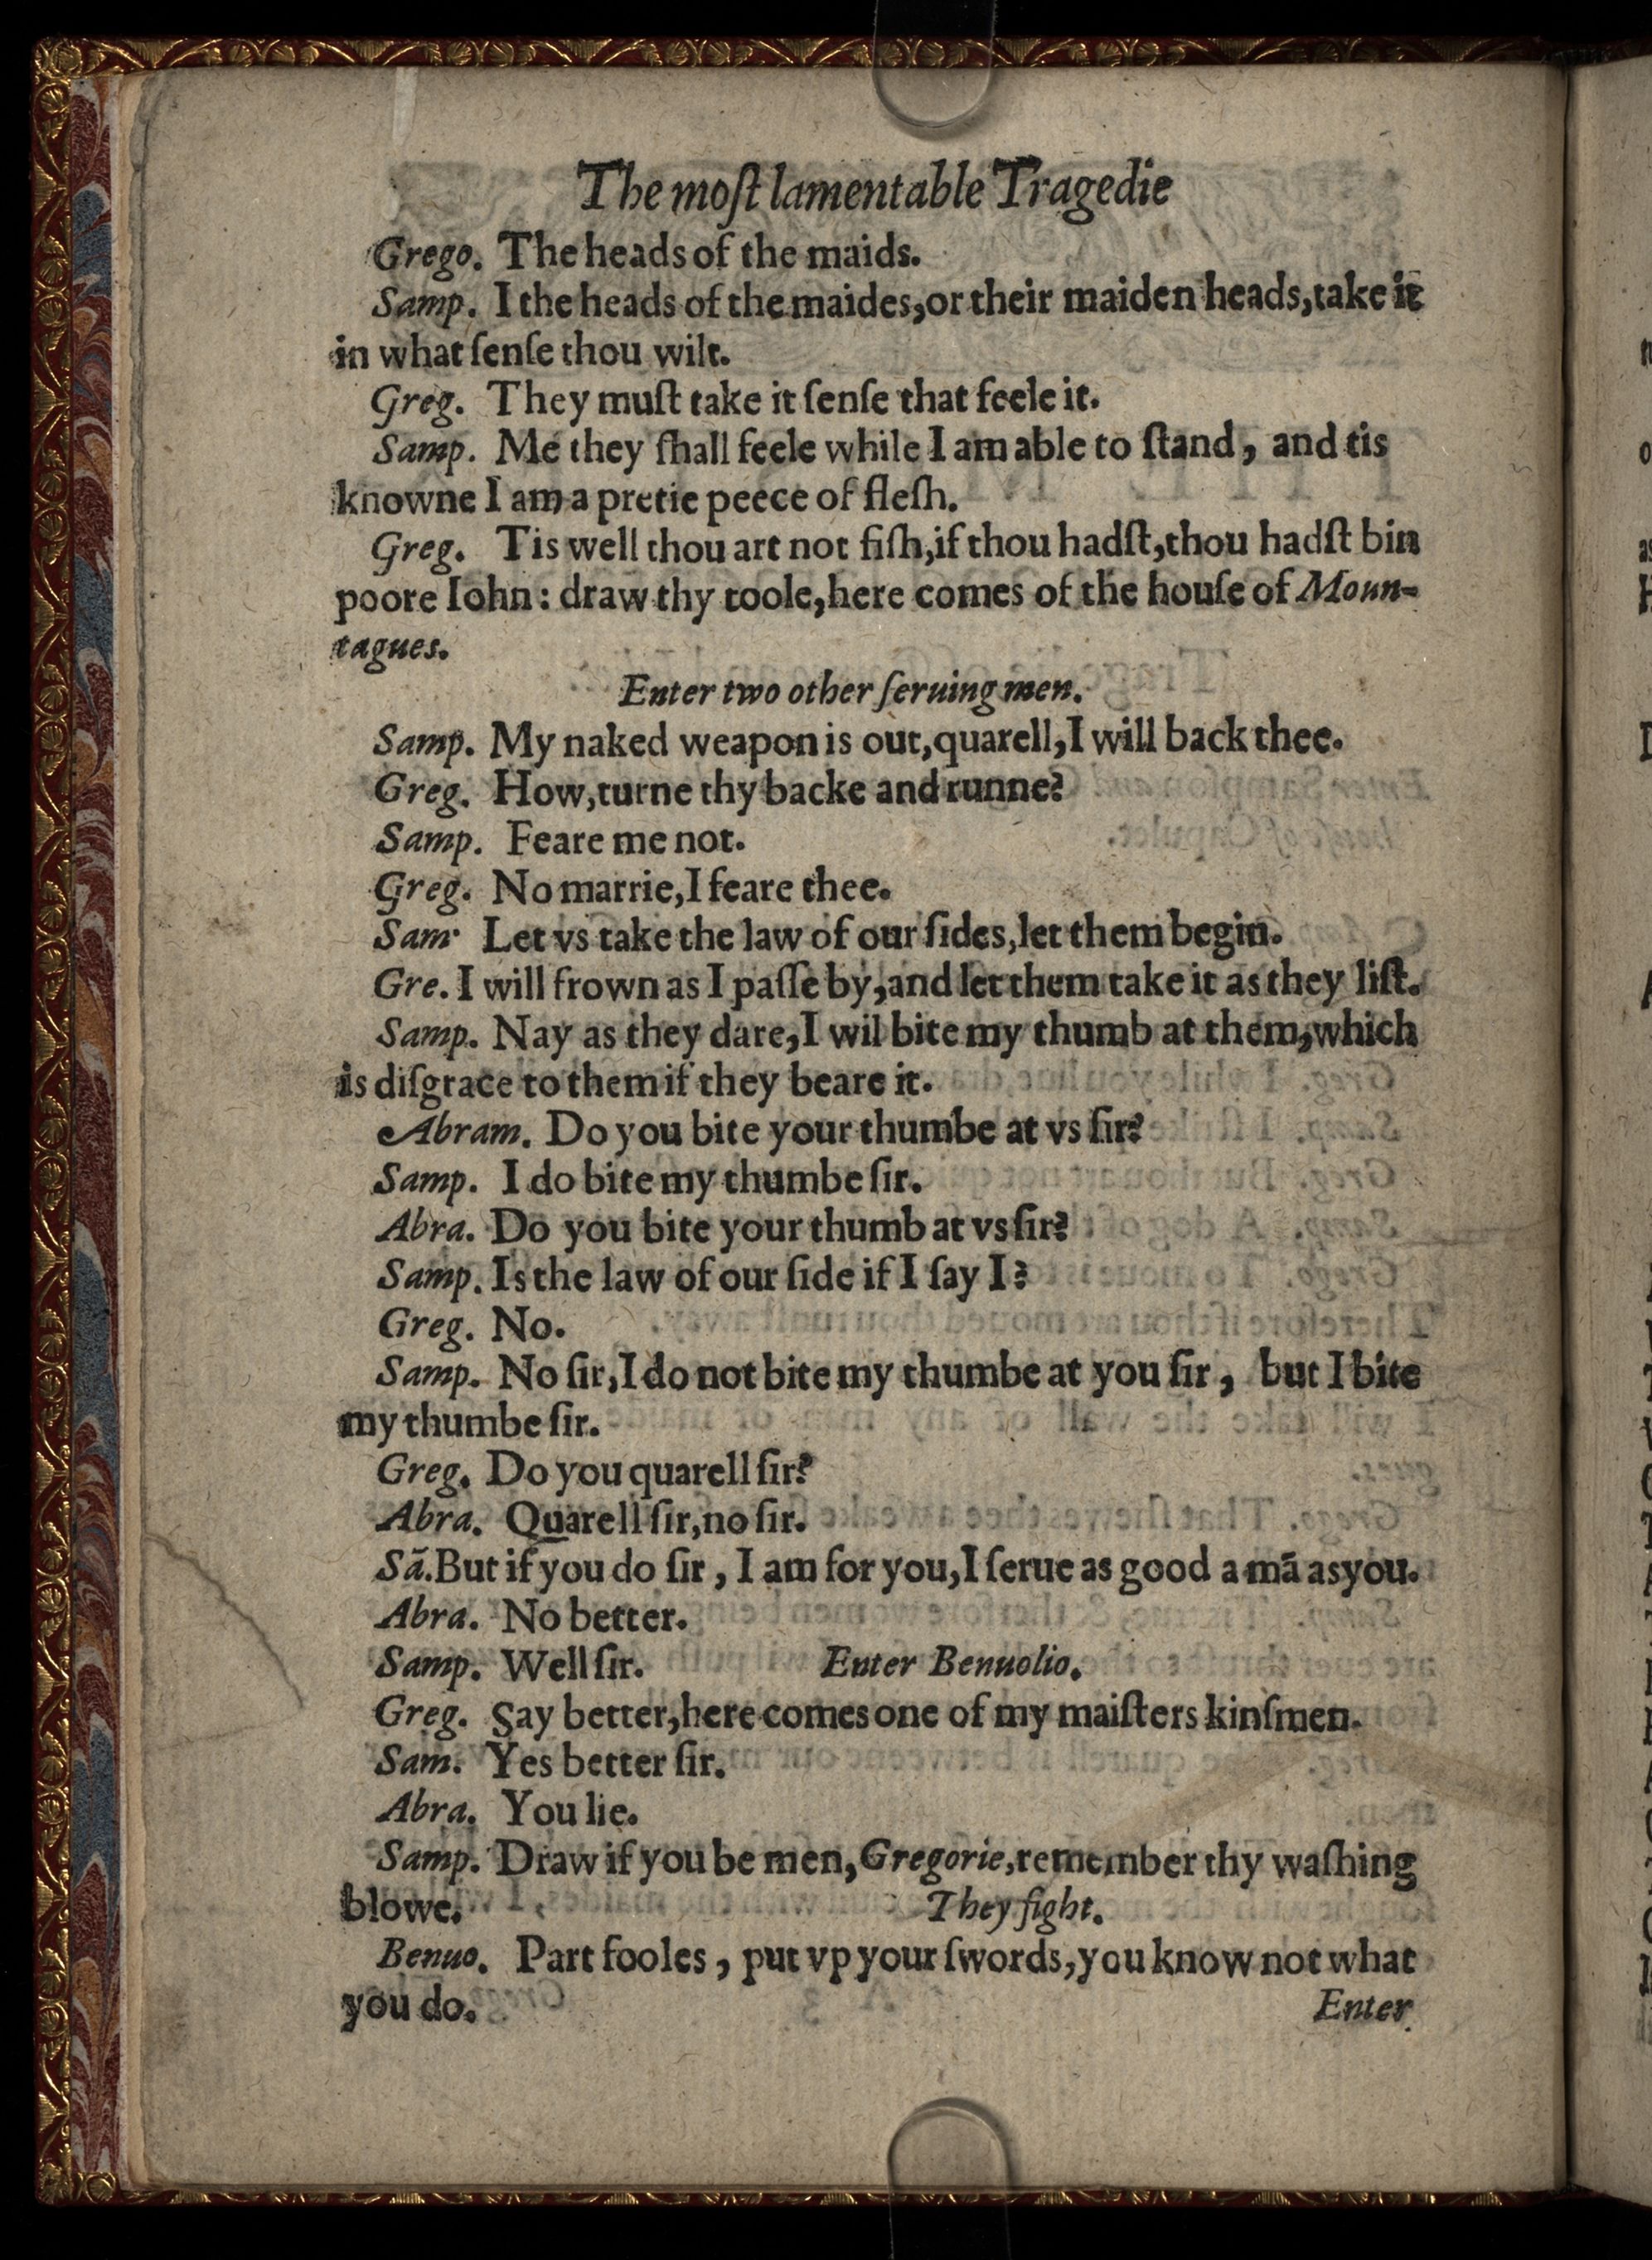 The moſt lamentable Tragedie
Grego. The heads of the maids.
Samp. I the heads of the maides,or their maiden heads,take it
in what ſenſe thou wilt.
Greg. They muſt take it ſenſe that feele it.
Samp. Me they ſhall feele while I am able to ſtand, and tis
knowne I am a pretie peece of fleſh.
Greg. Tis well thou art not fiſh,if thou hadſt,thou hadſt bin
poore Iohn: draw thy toole,here comes of the houſe of Moun-
tagues.
Enter two other ſeruing men.
Samp. My naked weapon is out,quarell,I will back thee.
Greg. How,turne thy backe and runne?
Samp. Feare me not.
Greg. No marrie,I feare thee.
Sam· Let vs take the law of our ſides,let them begin.
Gre. I will frown as I paſſe by,and let them take it as they liſt.
Samp. Nay as they dare,I wil bite my thumb at them,which
is diſgrace to them if they beare it.
Abram. Do you bite your thumbe at vs ſir?
Samp. I do bite my thumbe ſir.
Abra. Do you bite your thumb at vs ſir?
Samp. Is the law of our ſide if I ſay I?
Greg. No.
Samp. No ſir,I do not bite my thumbe at you ſir, but I bite
my thumbe ſir.
Greg. Do you quarell ſir?
Abra. Quarell ſir,no ſir.
Sã.But if you do ſir, I am for you,I ſerue as good a mã as you.
Abra. No better.
Samp. Well ſir. Enter Benuolio.
Greg. Say better,here comes one of my maiſters kinſmen.
Sam. Yes better ſir.
Abra. You lie.
Samp. Draw if you be men,Gregorie,remember thy waſhing
blowe. They fight.
Benuo. Part fooles, put vp your ſwords,you know not what
you do. Enter